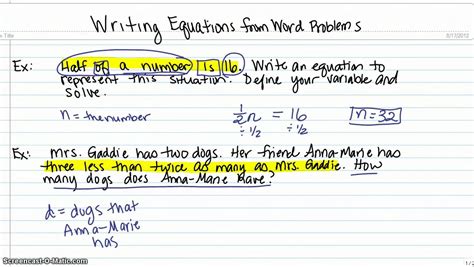 Writing Equations from Word Problems
Title
8/17/2012
Ex: Half of a number is 16. Write an equation to
represent this situation. Define your variable and
solve.
n = the number
1/2 n = 16
÷ 1/2 ÷ 1/2
n = 32
Ex: Mrs. Gaddie has two dogs. Her friend Anna-Marie has
three less than twice as many as Mrs. Gaddie. How
many dogs does Anna-Marie have?
d = dogs that
Anna-Marie
has
Screencast-O-Matic.com